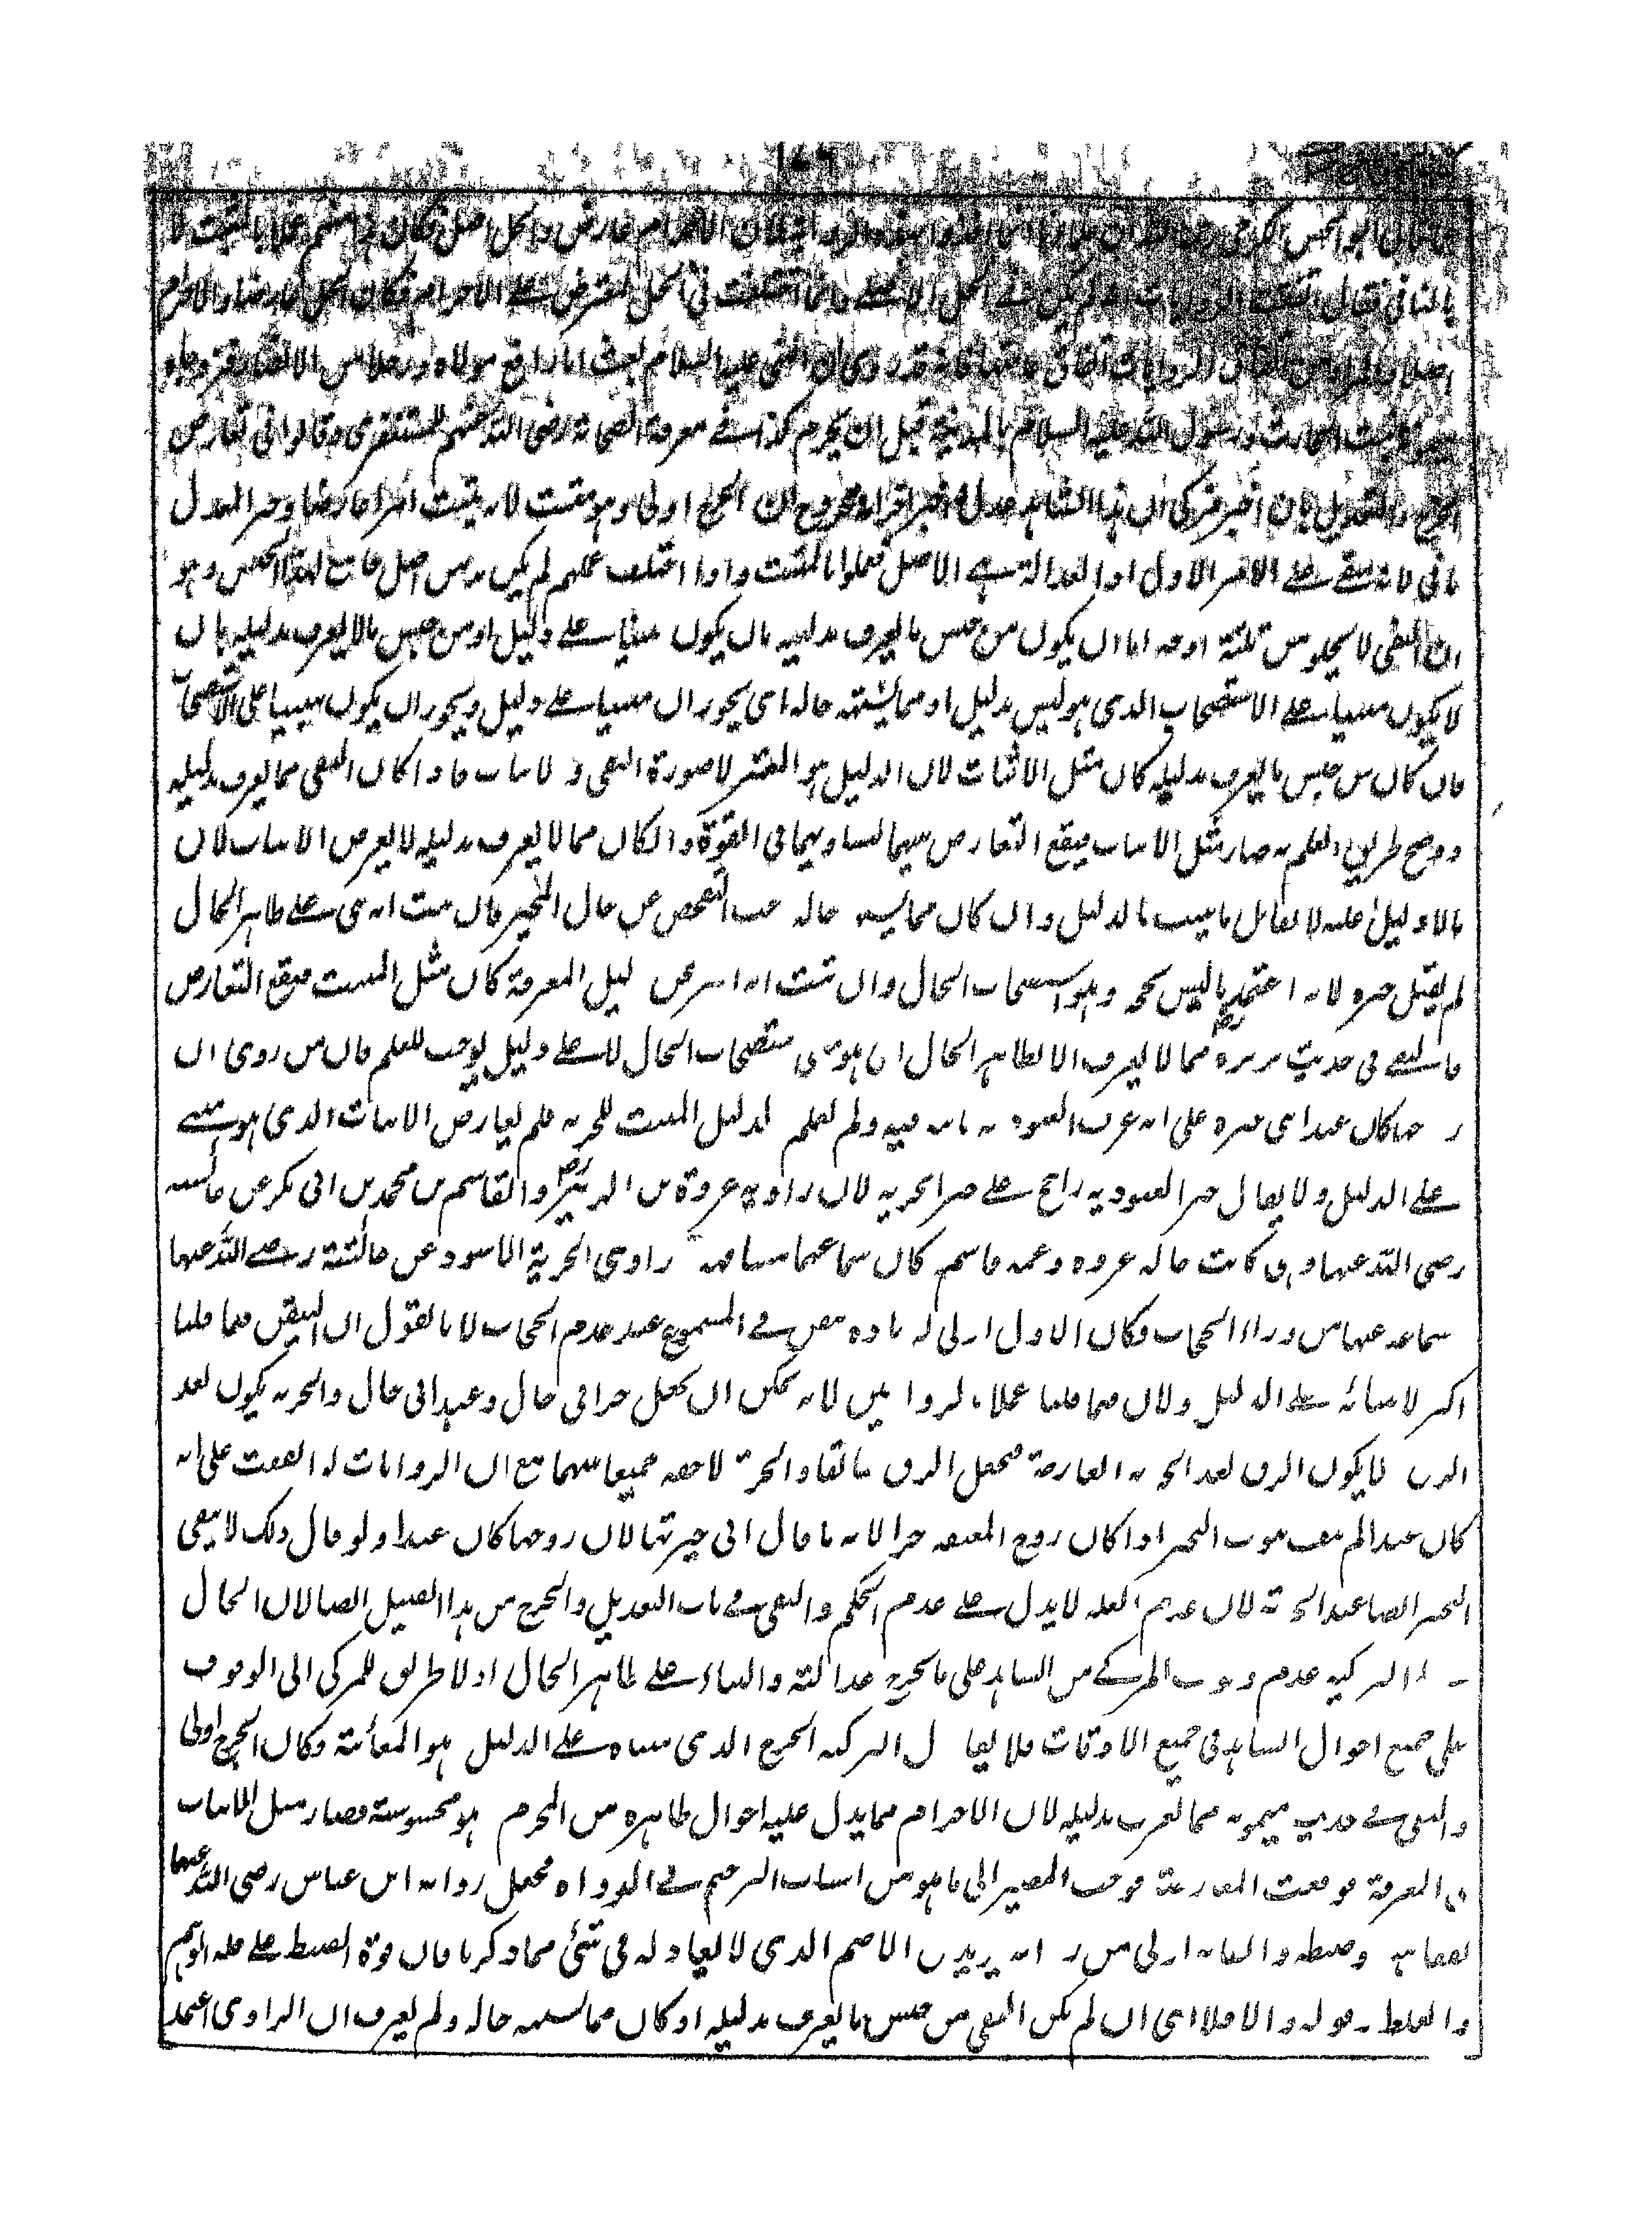 بالنافي فقال اتفقت الروايات انه لم يكن في الحل الاصلي وانما اختلفت في الحل المعترض على الاحرام فكان الحل عارضا والاحرام
اصلا والمراد من اتفاق الروايات اتفاق عامتها فانه قد روي ان النبي عليه السلام بعث ابا رافع مولاه ورجلا من الانصار فزوجاه
ميمونة بنت الحارث ورسول الله عليه السلام بالمدينة قبل ان يحرم كذا في معرفة الصحابة رضي الله عنهم للمستغفري وقالوا في تعارض
الجرح والتعديل بان اخبر مزكي ان هذا الشاهد عدل واخبر اخر انه مجروح ان الجرح اولى وهو مثبت لانه يثبت امرا عارضا وخبر المعدل
نافي لانه مبقي على الامر الاول اذ العدالة هي الاصل فعملوا بالمثبت واذا اختلف عملهم لم يكن بد من اصل جامع لهذا الجنس وهو
ان النفي لا يخلو من ثلثة اوجه اما ان يكون من جنس ما يعرف بدليله بان يكون مبنيا على دليل او من جنس ما لا يعرف بدليله بان
لا يكون مبنيا على الاستصحاب الذي هو ليس بدليل او مما يشتبه حاله اي يجوز ان مبنيا على دليل ويجوز ان يكون مبنيا على الاستصحاب
فان كان من جنس ما يعرف بدليله كان مثل الاثبات لان الدليل هو المعتبر لا صورة النفي والاثبات فاذا كان النفي مما يعرف بدليله
ووضح طريق العلم به صار مثل الاثبات فيقع التعارض بينهما لتساويهما في القوة وان كان مما لا يعرف بدليله لا يعارض الاثبات لان
ما لا دليل عليه لا يقابل ما يثبت بالدليل وان كان مما يشتبه حاله يجب التفحص عن حال المخبر فان ثبت انه بنى على ظاهر الحال
لم يقبل خبره لانه اعتمد ما ليس بحجة وهو استصحاب الحال وان ثبت انه اخبر عن دليل المعرفة كان مثل المثبت فيقع التعارض
فالنفي في حديث بريرة مما لا يعرف الا بظاهر الحال اذ هو بنى على استصحاب الحال لا على دليل يوجب للعلم فان من روى ان
زوجها كان عبدا بنى خبره على انه عرف العبودية ثابتة فيه ولم يعلم الدليل المثبت للحرية فلم يعارض الاثبات الذي هو مبني
على الدليل ولا يقال خبر العبودية راجح على خبر الحرية لان راويه عروة بن الزبير والقاسم بن محمد بن ابي بكر عن عائشة
رضي الله عنها وهي كانت خالة عروة وعمة قاسم فكان سماعهما مشافهة وراوي الحرية الاسود عن عائشة رضي الله عنها
سماعه عنها من وراء الحجاب فكان الاول اولى لزيادة تيقن في المسموع عند عدم الحجاب لانا نقول ان التيقن فيما قلنا
اكثر لابتنائه على الدليل ولان فيما قلنا عملا بالروايتين لانه يمكن ان يجعل حرا في حال وعبدا في حال والحرية تكون بعد
الرق لا يكون الرق بعد الحرية العارضة فيجعل الرق سابقا والحرية لاحقة جمعا بينهما مع ان الروايات لو اتفقت على انه
كان عبدا لم ينف ثبوت التخيير اذا كان زوج المعتقة حرا لانه ما قال اني خيرتها لان زوجها كان عبدا ولو قال ذلك لا ينفي
التخيير ايضا عند الحرية لان عدم العلة لا يدل على عدم الحكم والنفي في باب التعديل والجرح من هذا القبيل ايضا لان الحال
التزكية عدم وقوف المزكي من الشاهد على ما يجرح عدالته والبناء على ظاهر الحال اذ لا طريق للمزكي الى الوقوف
على جميع احوال الشاهد في جميع الاوقات فلا يقابل التزكية الجرح الذي مبناه على الدليل هو المعاينة وكان الجرح اولى
والنفي في حديث ميمونة مما يعرف بدليله لان الاحرام مما يدل عليه احوال ظاهرة من المحرم هو محسوسة فصار مثل الاثبات
في المعرفة فوقعت المعارضة فوجب المصير الى ما هو من اسباب الترجيح في الرواة فجعل رواية ابن عباس رضي الله عنهما
لفقاهته وضبطه واتقانه اولى من رواية يزيد بن الاصم الذي لا يعادله في شيء مما ذكرنا فان قوة الضبط على قلة الوهم
والغلط قوله والا فلا اي ان لم يكن النفي من جنس ما يعرف بدليله او كان مما يشتبه حاله ولم يعرف ان الراوي اعتمد